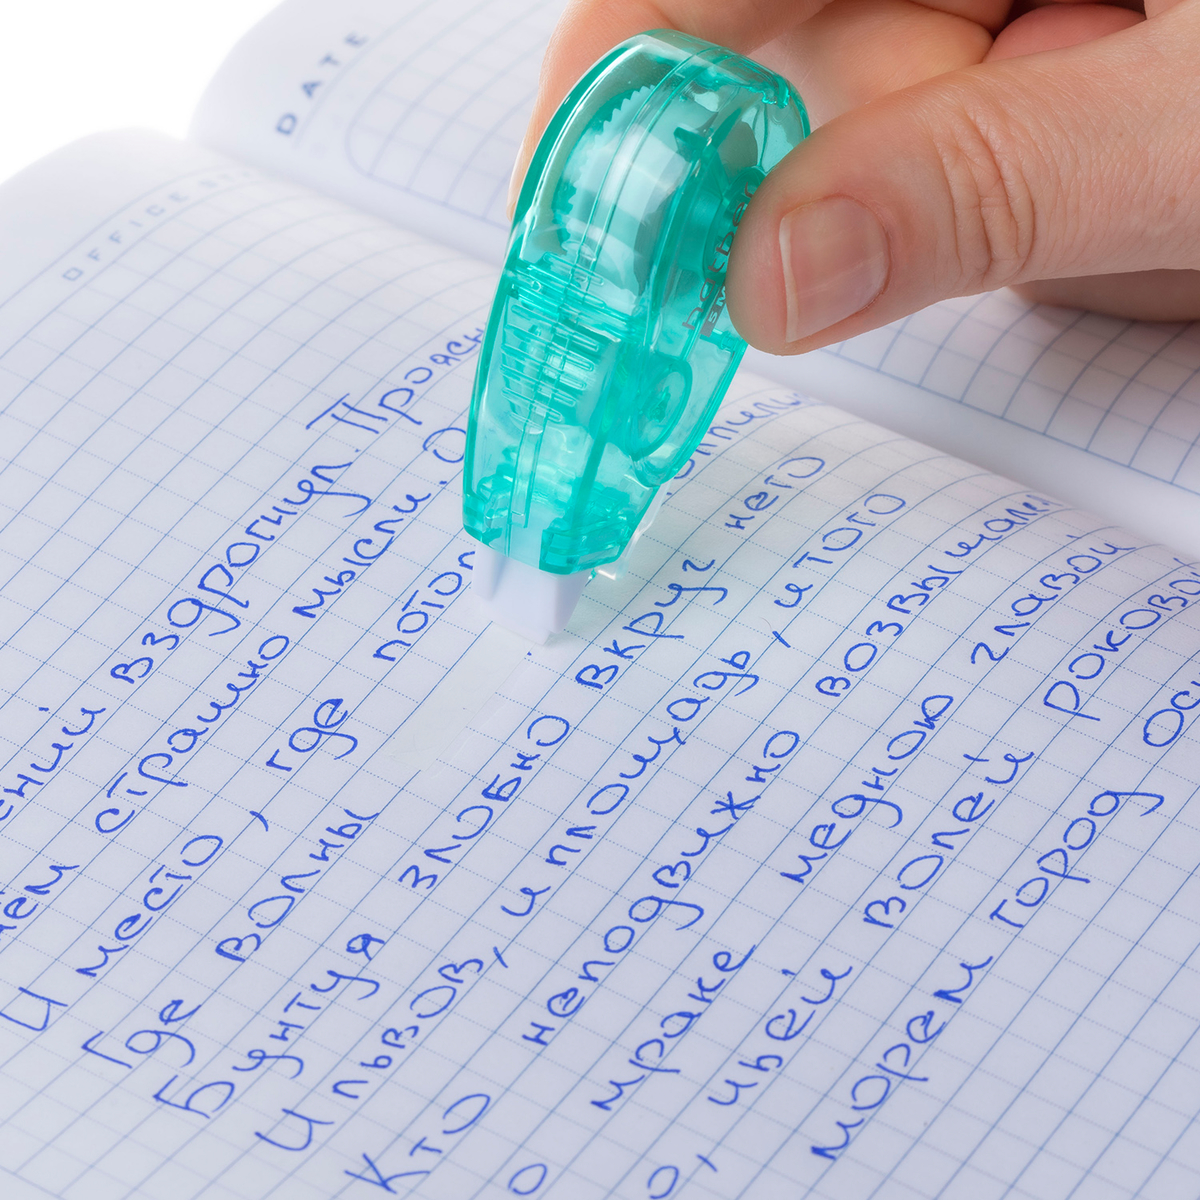 DATE
OFFICE
вздрогнул. Проясн
страшно мысли. О
И место, где потоп
Где волны
Бунтуя злобно вкруг него
И львов, и площадь, и того
Кто неподвижно возвышале
о мраке медною главой
о, чьей волей роковой
морем город